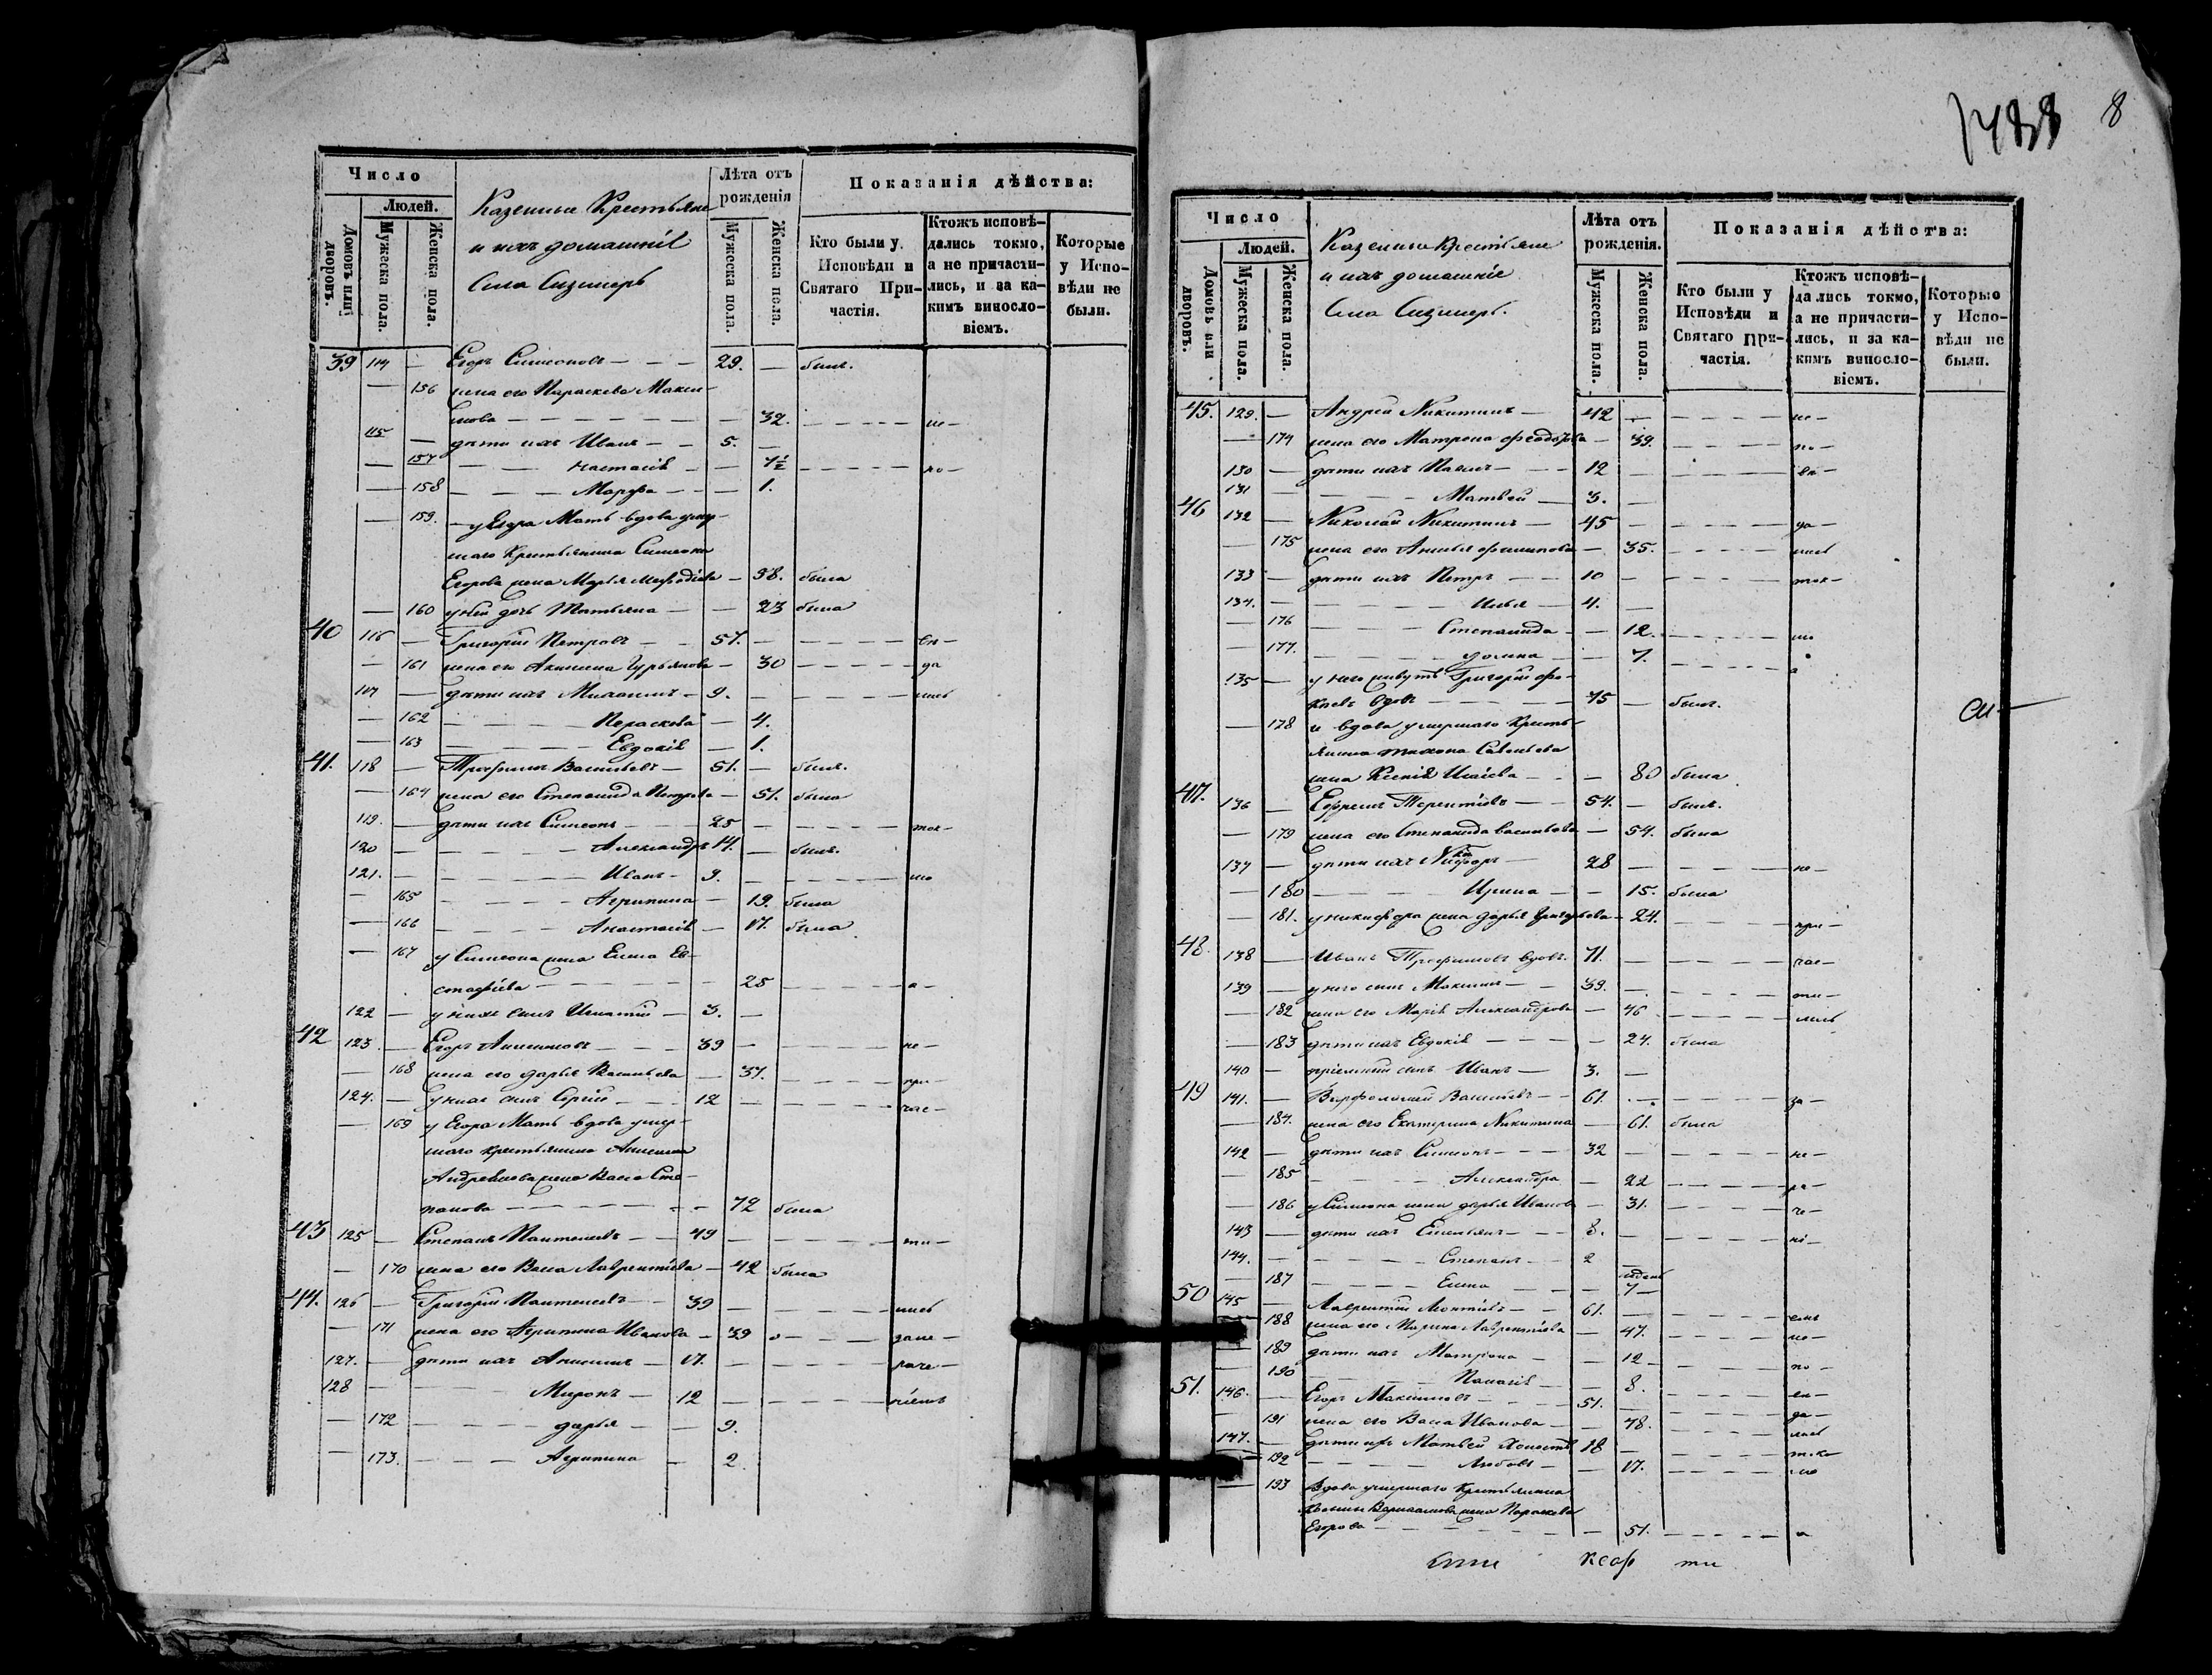 Число
Людей.
Домовъ или дворовъ.
Мужеска пола.
Женска пола.
Казенные Крестьяне
и ихъ домашніе
Села Сизнеръ
Лѣта отъ рожденія
Мужеска пола.
Женска пола.
Показанія дѣйства:
Кто были у Исповѣди и Святаго Причастія.
Ктожъ исповѣдались токмо, а не причастились, и за какимъ винословіемъ.
Которые у Исповѣди не были.
39 114 — Егоръ Симеоновъ — — — 29. — былъ.
— 156 жена его Параскева Макси-
мова — — — 32. — — — не —
115 — дѣти ихъ Иванъ — — 5. —
— 157 — — Настасія — — 7½ — — — по —
— 158 — — — Марфа — — — 1.
— 159. — у Егора Мать вдова умер-
шаго Крестьянина Симеона
Егорова жена Марья Меѳодіева — 58. была
— 160 у ней дочь Татьяна — — 23 была
40 116 — Григорій Петровъ — — 57. — — — — вѣ —
— 161 жена его Акилина Гурьянова — 30 — — — да
117 — дѣти ихъ Михаилъ — 9. — — — — лись
— 162 — — — Параскева — 4.
— 163 — — — Евдокія — 1.
41. 118 — Трофимъ Васильевъ — 51. — былъ.
— 164 жена его Степанида Петрова — 51. была
119. — дѣти ихъ Симеонъ — — 25 — — — — ток —
120 — — — — Александръ 14. — былъ.
121. — — — — Иванъ — 9. — — — — мо
— 165 — — — Агрипина — 19. была
— 166 — — — Анастасія — 17. была
— 167 у Симеона жена Елена Ев-
стафіева — — — 25 — — — а —
122 — у нихъ сынъ Игнатій — 3. —
42 123 — Егоръ Анисимовъ — — — 39 — — — не —
— 168 жена его Дарья Васильева — 37. — — — при —
124. — у нихъ сынъ Сергій — — 12 — — — час —
— 169 у Егора Мать вдова умер-
шаго крестьянина Анисима
Андреянова жена Васса Сте-
панова — — — — 72 была
43 125 — Степанъ Пантелеевъ — — 49 — — — ти —
— 170 жена его Васса Лаврентіева — 42 была
44. 126 — Григорій Пантелеевъ — — 39 — — — лись
— 171 жена его Агрипина Иванова — 39 — — — зане —
127. — дѣти ихъ Анисимъ — 17. — — — раче —
128 — — — Миронъ — 12 — — — ніемъ
— 172 — — — Дарья — — 9.
— 173. — — — Агрипина — 2.
1488 8
Число
Людей.
Домовъ или дворовъ.
Мужеска пола.
Женска пола.
Казенные Крестьяне
и ихъ домашніе
Села Сизнеръ.
Лѣта отъ рожденія.
Мужеска пола.
Женска пола.
Показанія дѣйства:
Кто были у Исповѣди и Святаго Причастія.
Ктожъ исповѣдались токмо, а не причастились, и за какимъ винословіемъ.
Которые у Исповѣди не были.
45. 129. — Андрей Никитинъ — 42 — — — — ис —
— 174 жена его Матрона Ѳеодорова — 39. — — — по —
130 — дѣти ихъ Павелъ — — — 12 — — — вѣ —
131 — — — — Матвей — 3. —
46 132 — Николай Никитинъ — 45 — — — — да —
— 175 жена его Анисья Филипова — 35. — — — лись
133 — дѣти ихъ Петръ — — 10 — — — ток —
134. — — — — Илья — 4. —
— 176 — — — Степанида — — 12. — — — мо
— 177. — — — Домна — — 7. — — — а
135 — у него живутъ Григорій Фо-
кѣевъ вдовъ — — — 75 — былъ.
— 178 и вдова умершаго Кресть-
янина Тихона Савельева
жена Ксенія Исаіева — — — 80 была
47. 136 — Ефремъ Терентіевъ — — 54. — былъ.
— 179 жена его Степанида Васильева — 54. была
137 — дѣти ихъ Никифоръ — 28 — — — не —
— 180 — — — Ирина — — 15. была
— 181. у Никифора жена Дарья Григорьева — 24. — — — при —
48. 138 — Иванъ Трофимовъ вдовъ. 71. — — — час —
139 — у него сынъ Максимъ — — 39. — — — ти —
— 182 жена его Марія Александрова — 46 — — — лись
— 183 дѣти ихъ Евдокія — — — 24. была
140 — пріемный сынъ Иванъ — 3. —
49 141. — Варфоломей Васильевъ — — 61. — — — за —
— 184. жена его Екатерина Никитина — 61. была
142 — дѣти ихъ Симеонъ — — — 32 — — — не —
— 185 — — — Александра — 22 — — — ра —
— 186 у Симеона жена Дарья Иванова — 31. — — — че —
143 — дѣти ихъ Емельянъ — — — 8. — — — ні —
144. — — — Степанъ — — 2 —
— 187 — — — Елена — — — недель 7 —
50 145 — Лаврентій Леонтіевъ — — 61. — — — емъ
— 188 жена его Марина Лаврентіева — 47. — — — ис —
— 189 дѣти ихъ Матрона — — 12 — — — по —
— 190 — — — Пелагія — — 8. — — — вѣ —
51. 146. — Егоръ Максимовъ — — 51. — — — да —
— 191 жена его Васса Иванова — — 48. — — — лись
147. — дѣти ихъ Матвей Холостъ 18 — — — ток —
— 192 — — — Любовь — — 17. — — — мо
— 193 Вдова умершаго Крестьянина
Варлаамова жена Параскева
Егорова — — — — 51. — — — а